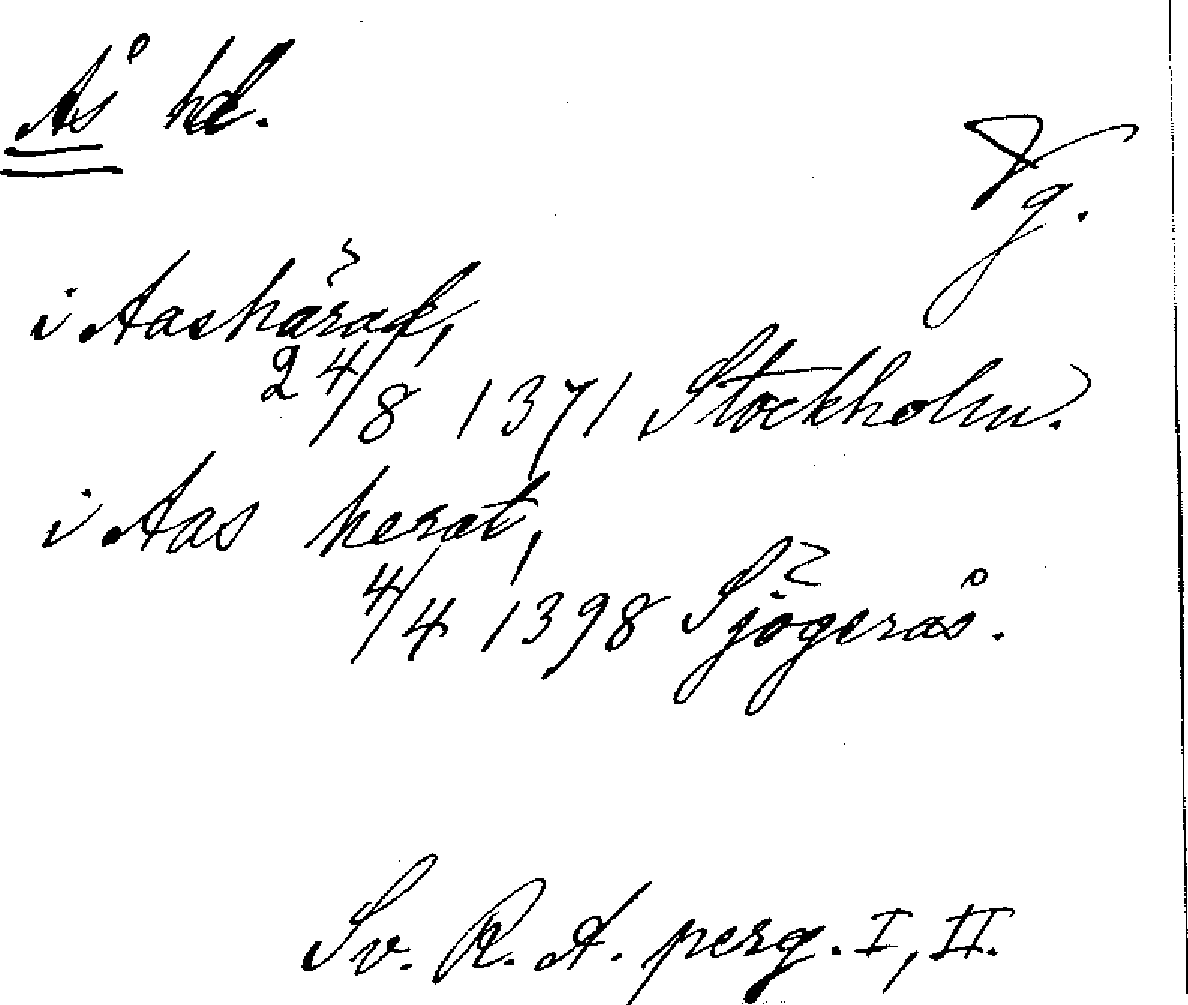 Ås hd.
Vg.
i Aashärad,
24/8 1371 Stockholm.
i Aas herat,
4/4 1398 Sjögerås.
Sv. R. A. perg. I, II.